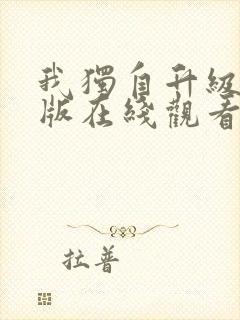 我獨自升級
版在綫觀看
拉普